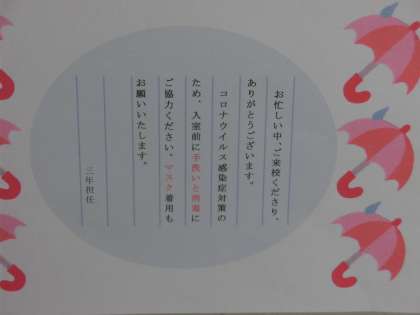 お忙しい中、ご来校くださり、
ありがとうございます。
コロナウイルス感染症対策の
ため、入室前に手洗いと消毒に
ご協力ください。マスク着用も
お願いいたします。
三年担任